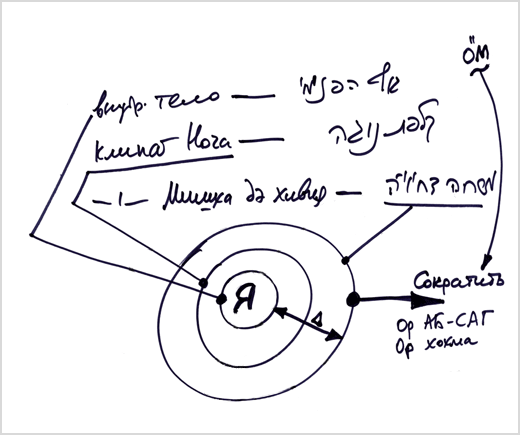 ÖМ
внутр. тело — גוף הפנימי
клипат Нога — קליפת נוגה
—|— Мишха дэ хивия — משחה דחיויה
Я
Δ
Сократить
Ор АБ-САГ
Ор хохма